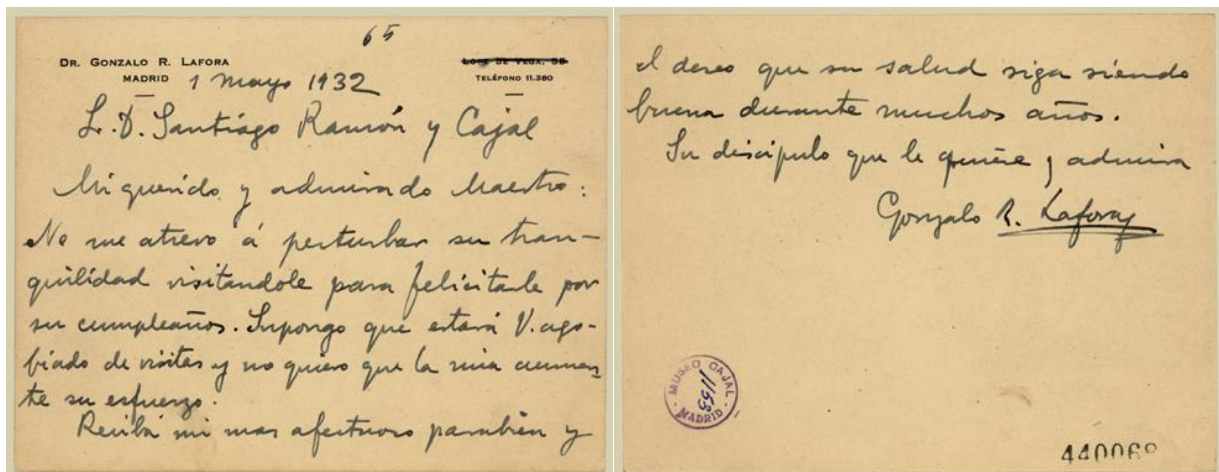 65
DR. GONZALO R. LAFORA
MADRID
LOPE DE VEGA, 55
TELÉFONO 11.380
1 Mayo 1932
S. D. Santiago Ramón y Cajal
Mi querido y admirado Maestro:
No me atrevo á perturbar su tran-
quilidad visitandole para felicitarle por
su cumpleaños. Supongo que estará V. ago-
biado de visitas y no quiero que la mia aumen-
te su esfuerzo.
Reciba mi mas afectuoso parabién y
el deseo que su salud siga siendo
buena durante muchos años.
Su discipulo que le quiere y admira
Gonzalo R. Lafora
MUSEO CAJAL
1153
MADRID